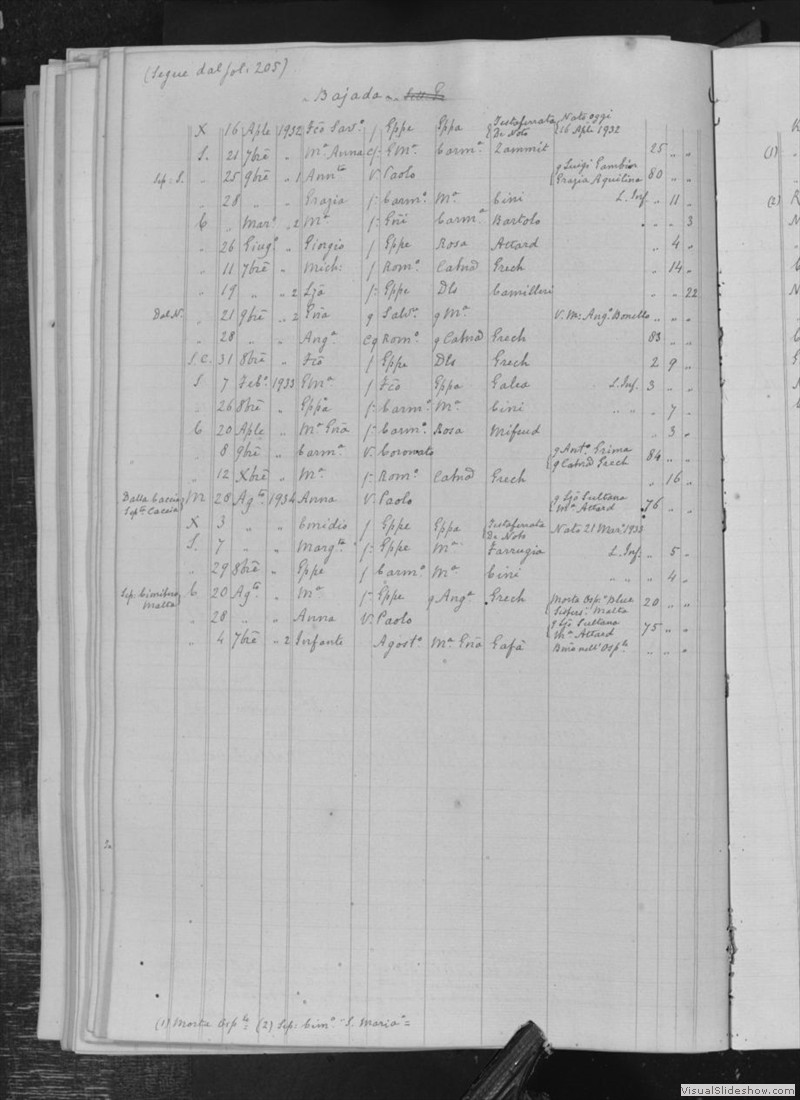 (Segue dal fol: 205)
„ Bajada „
X 16 Aple 1932 Fco Salvo. f Eppe Eppa Testaferrata Di Noto Nato oggi 16 Aple 1932
S. 21 7bre „ Ma. Anna C/: Ema. Carma. Zammit 25 „ „
Sep: S. „ 25 9bre „ 1 Annta V. Paolo q Luigi Grazia Aquilina 80 „ „
„ 28 „ „ Grazia f: Carmo. Ma. Cini L. Inf. „ 11 „
C „ Marzo „ 2 Ma. f: Carma. Bartolo „ „ 3
„ 26 Giugo „ Giorgio f Eppe Rosa Attard „ 4 „
„ 11 7bre „ Mich: f Romo. Catnd Grech „ 14 „
„ 19 „ „ 2 f: Eppe Dls Camilleri „ „ 22
Dal N. „ 21 9bre „ 2 q Salvo. q Ma. V. Mo: Ango. Bonello „ „ „
„ 28 „ „ Anga. Cq Romo. q Catnd Grech 83 „ „
S.C. 31 8bre „ Fco f Eppe Dls Grech 2 9 „
S 7 Febo. 1933 Ema. f Fco Eppa Galea L. Inf. 3 „ „
„ 26 8bre „ Eppa f: Carmo. Ma. Cini „ „ „ 7 „
C 20 Aple „ Ma. f: Carmo. Rosa Mifsud „ 3 „
„ 8 9bre „ Carma. V. Coronato q Anto. Grima q Catnd Grech 84 „ „
„ 12 Xbre „ Ma. f: Romo. Catnd Grech „ 16 „
Dalla Caccia Septa Caccia M. 28 Agto 1934 Anna V. Paolo q Sultana Ma. Attard 76 „ „
X 3 „ „ Emidio f Eppe Eppa Testaferrata Di Noto Nato 21 Maro. 1933
S. 7 „ „ Margta f: Eppe Ma. Farrugia L. Inf. „ 5 „
„ 29 8bre „ Eppe f Carmo. Ma. Cini „ „ „ 4 „
Sep: Cimitero Malta C 20 Agto „ Ma. f: Eppe q Anga. Grech Morta Osple Blue Sisters: Malta 20 „ „
„ 28 „ „ Anna V. Paolo q Sultana Ma. Attard 75 „ „
„ 4 7bre „ 2 Infante Agosto. Ma. Gafà nell' Osple „ „ „
(1) Morta Osple: (2) Sep: Cimo. "S. Maria" =
VisualSlideshow.com